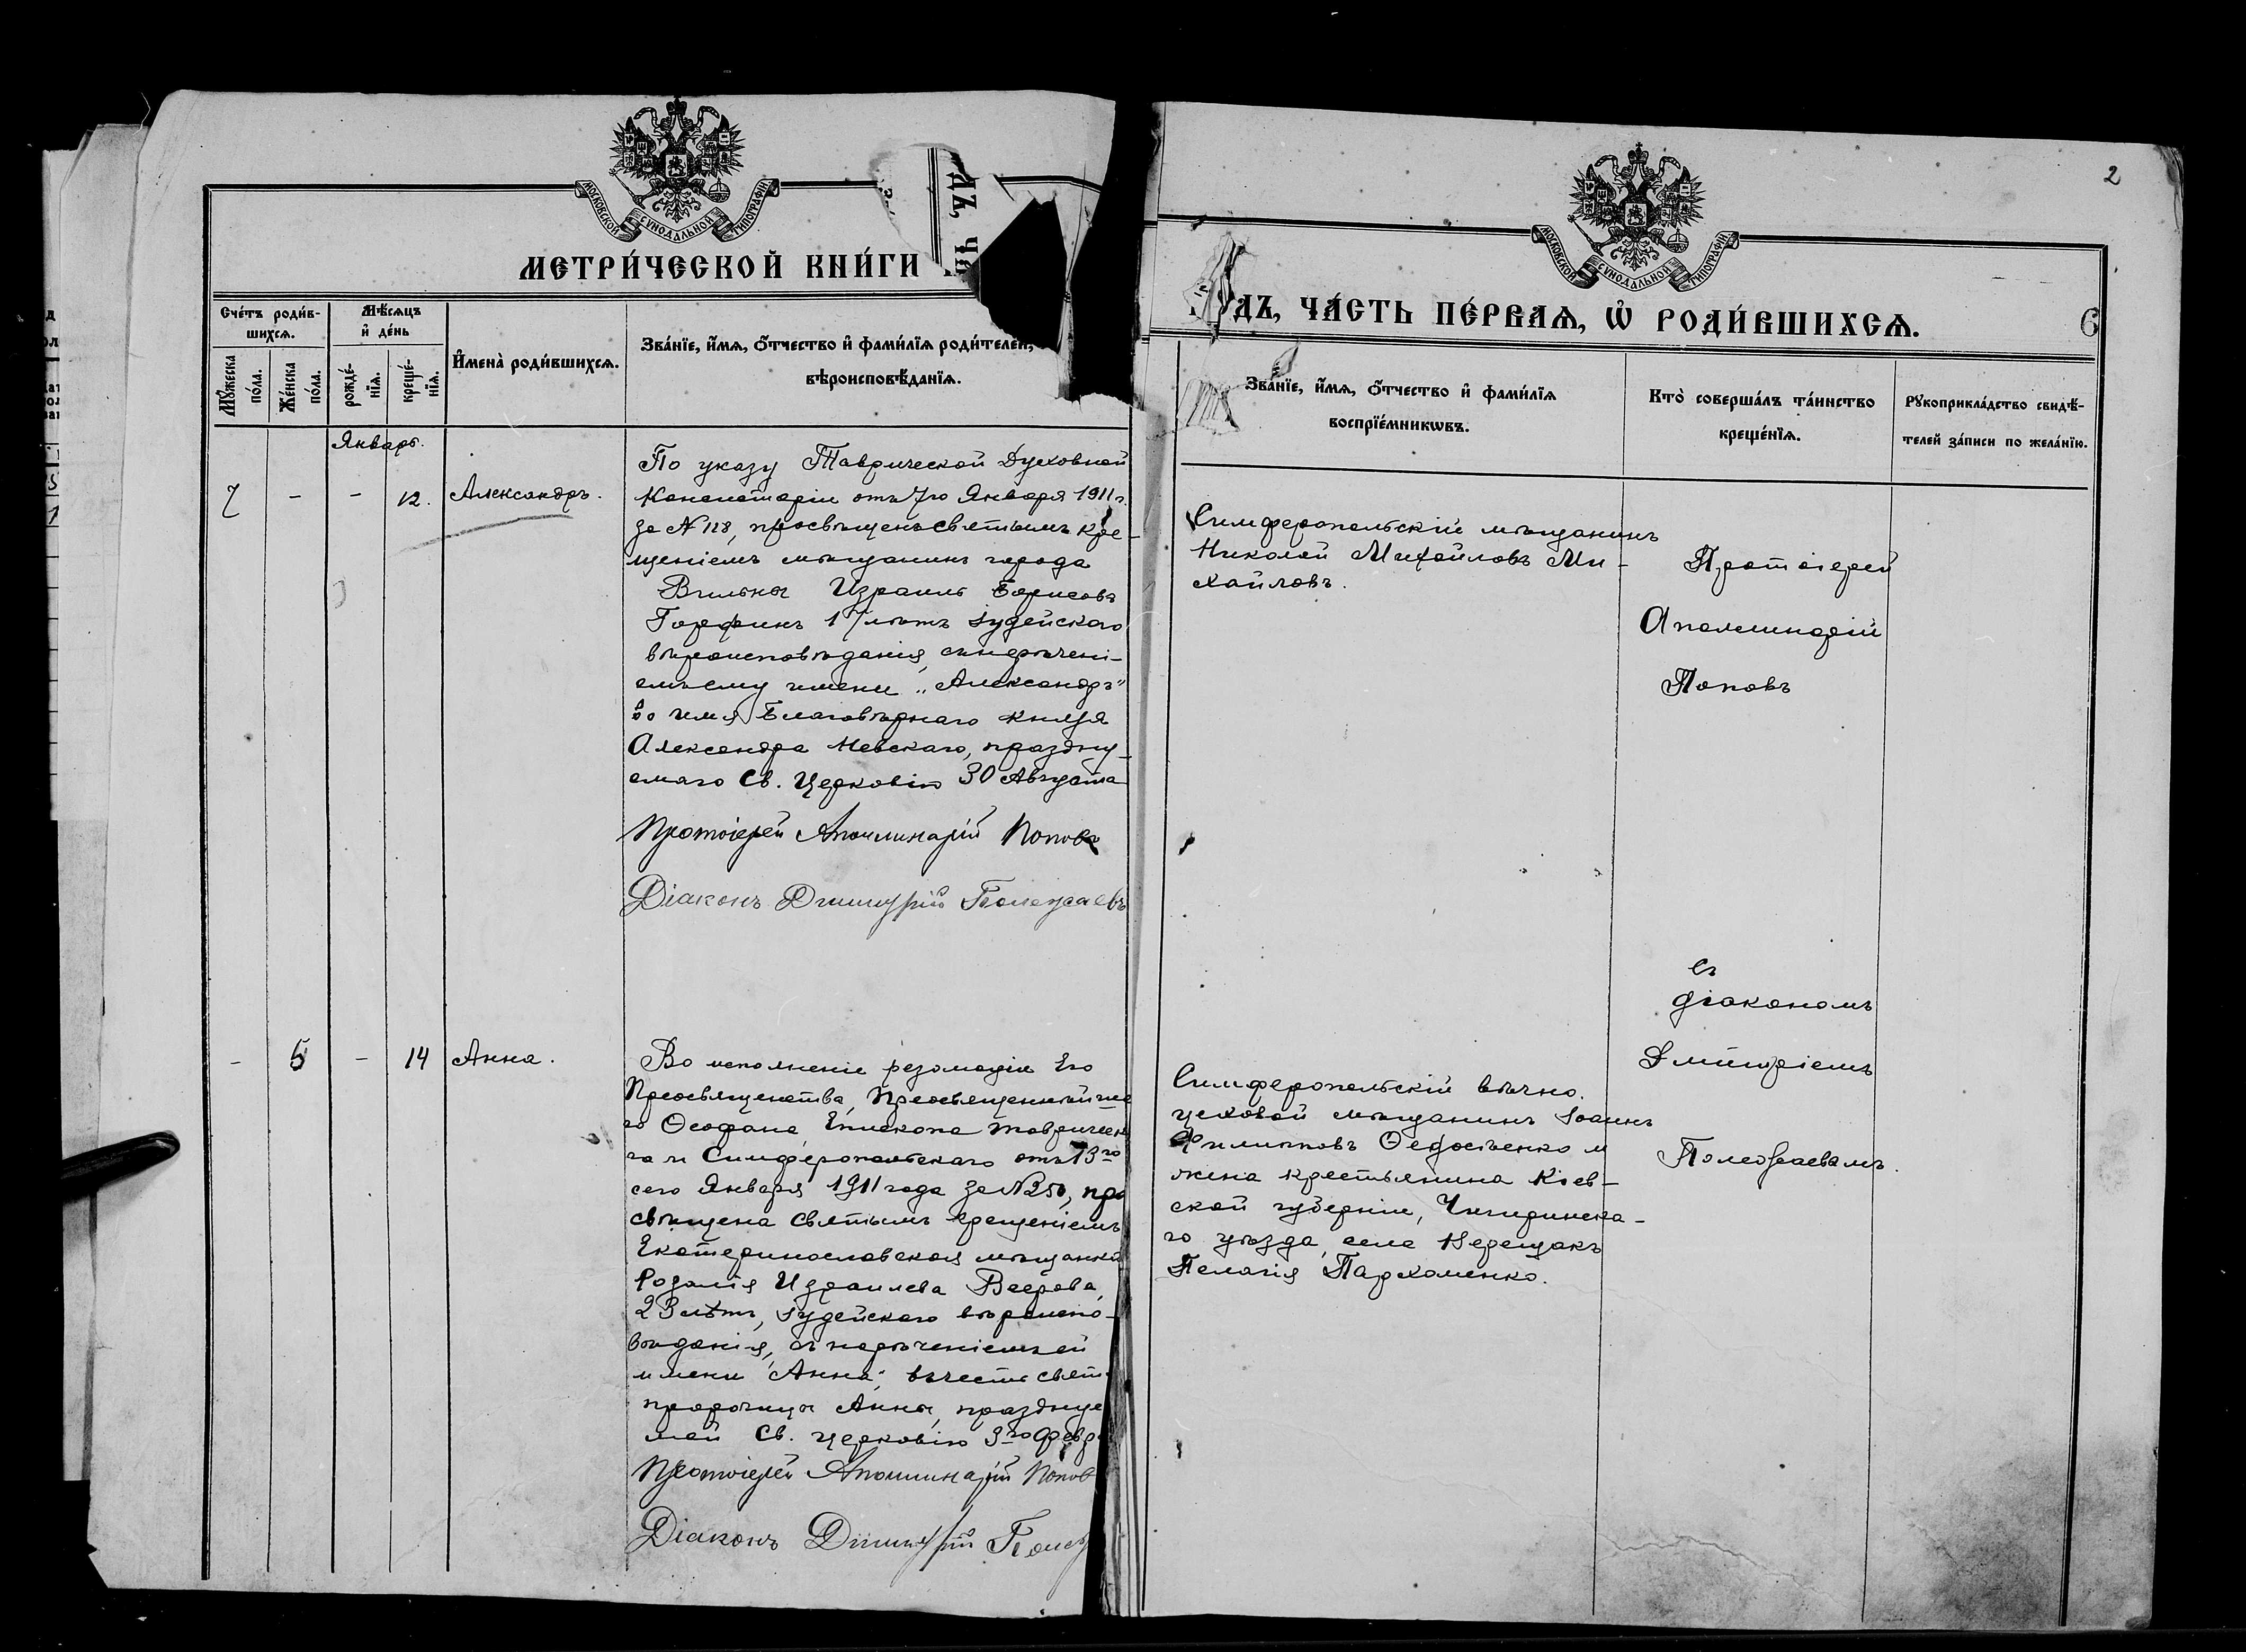 МОСКОВСКОЙ СѴНОДАЛЬНОЙ ТИПОГРАФІИ
МЕТРИ́ЧЕСКОЙ КНИ́ГИ
Сче́тъ роди́в-
шихсѧ.
Мꙋ́жеска
по́ла.
Же́нска
по́ла.
Мѣ́сѧцъ
и҆ де́нь
рожде́-
нїѧ.
креще́-
нїѧ.
И҆мена̀ роди́вшихсѧ.
Зва́нїе, и҆́мѧ, ѻ҆́тчество и҆ фами́лїѧ роди́телей,
вѣроисповѣ́данїѧ.
Январь.
7
-
-
12.
Александръ.
По указу Таврической Духовной
Консисторіи отъ 7го Января 1911 г.
за № 128, просвѣщенъ святымъ кре-
щеніемъ мѣщанинъ города
Вильны Израиль Борисовъ
лѣтъ іудейскаго
вѣроисповѣданія, с нарѣчені-
емъ ему имени „Александръ"
во имя Благовѣрнаго Князя
Александра Невскаго, праздну-
емаго Св. Церковію 30 Августа
Протоіерей Аполлинарій Поповъ
Діаконъ Димитрій Полежаевъ
-
5
-
14
Анна.
Во исполненіе резолюціи Его
Преосвященства, Преосвященнѣйша
го Ѳеофана, Епископа Тавричес
го и Симферопольскаго отъ 13го
сего Января 1911 года за № 250, про
свѣщена Святымъ крещеніемъ
Екатеринославская мѣщанка
Розалія Израилева
23 лѣтъ, іудейскаго вѣроиспо-
вѣданія, съ нарѣченіемъ ей
имени "Анна", въ честь свят
пророчицы Анны, праздну
мой Св. Церковію 3го Февр
Протоіерей Аполлинарій Попов
Діаконъ Димитрій Полеж
2
МОСКОВСКОЙ СѴНОДАЛЬНОЙ ТИПОГРАФІИ
ДЪ, ЧА́СТЬ ПЕ́РВАѦ, Ѽ РОДИ́ВШИХСѦ.
6
Зва́нїе, и҆́мѧ, ѻ҆́тчество и҆ фами́лїѧ
воспрїе́мникѡвъ.
Кто̀ соверша́лъ та́инство
креще́нїѧ.
Рꙋкоприкла́дство свидѣ́-
телей за́писи по жела́нїю.
Симферопольскій мѣщанинъ
Николай Михайловъ Ми-
хайловъ.
Протоіерей
Аполлинарій
Поповъ
съ
діакономъ
Димитріемъ
Полежаевымъ.
Симферопольскій вѣчно-
цеховой мѣщанинъ Іоаннъ
Филипповъ Ѳедосѣенко и
жена крестьянина Кіев-
ской губерніи, Чигиринска-
го уѣзда, села Верещакъ
Пелагія Пархоменко.